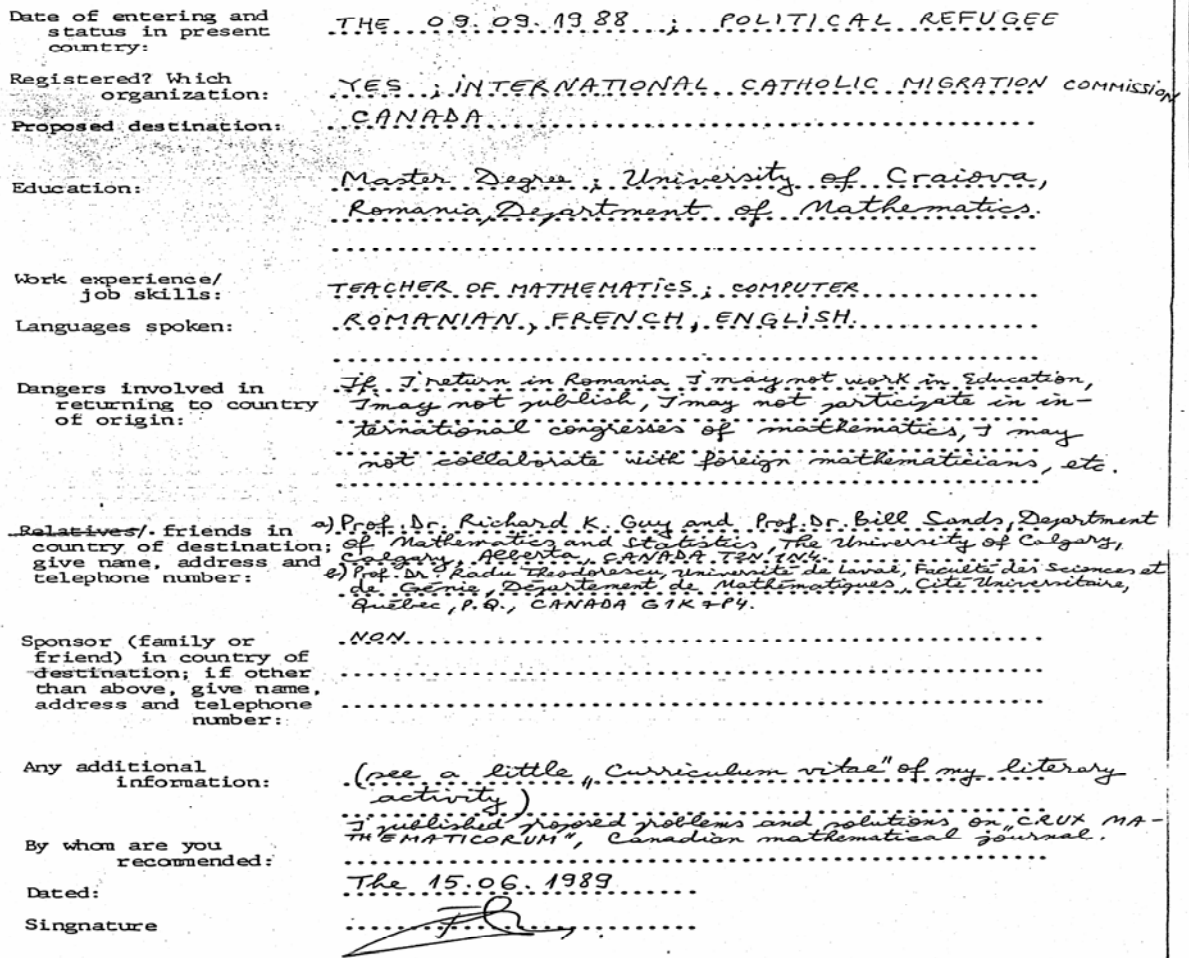 Date of entering and
status in present
country:
THE 09.09.1988 ; POLITICAL REFUGEE
Registered? Which
organization:
YES ; INTERNATIONAL CATHOLIC MIGRATION COMMISSION
Proposed destination:
CANADA
Education:
Master Degree ; University of Craiova,
Romania, Department of Mathematics.
Work experience/
job skills:
TEACHER OF MATHEMATICS ; COMPUTER
Languages spoken:
ROMANIAN, FRENCH, ENGLISH.
Dangers involved in
returning to country
of origin:
If I return in Romania I may not work in Education,
I may not publish, I may not participate in in-
ternational congresses of mathematics, I may
not collaborate with foreign mathematicians, etc.
Relatives/. friends in
country of destination;
give name, address and
telephone number:
a) Prof. Dr. Richard K. Guy and Prof. Dr. Bill Sands, Department
of Mathematics and Statistics, The University of Calgary,
Calgary, Alberta, CANADA T2N 1N4.
b) Prof. Dr. Radu Theodorescu, Université de Laval, Faculté des Sciences et
de Génie, Département de Mathématiques, Cité Universitaire,
Québec, P.Q., CANADA G1K 7P4.
Sponsor (family or
friend) in country of
destination; if other
than above, give name,
address and telephone
number:
NON
Any additional
information:
(see a little „Curriculum vitae" of my literary
activity)
I published proposed problems and solutions on „CRUX MA-
THEMATICORUM", Canadian mathematical journal.
By whom are you
recommended:
Dated:
The 15.06.1989
Singnature